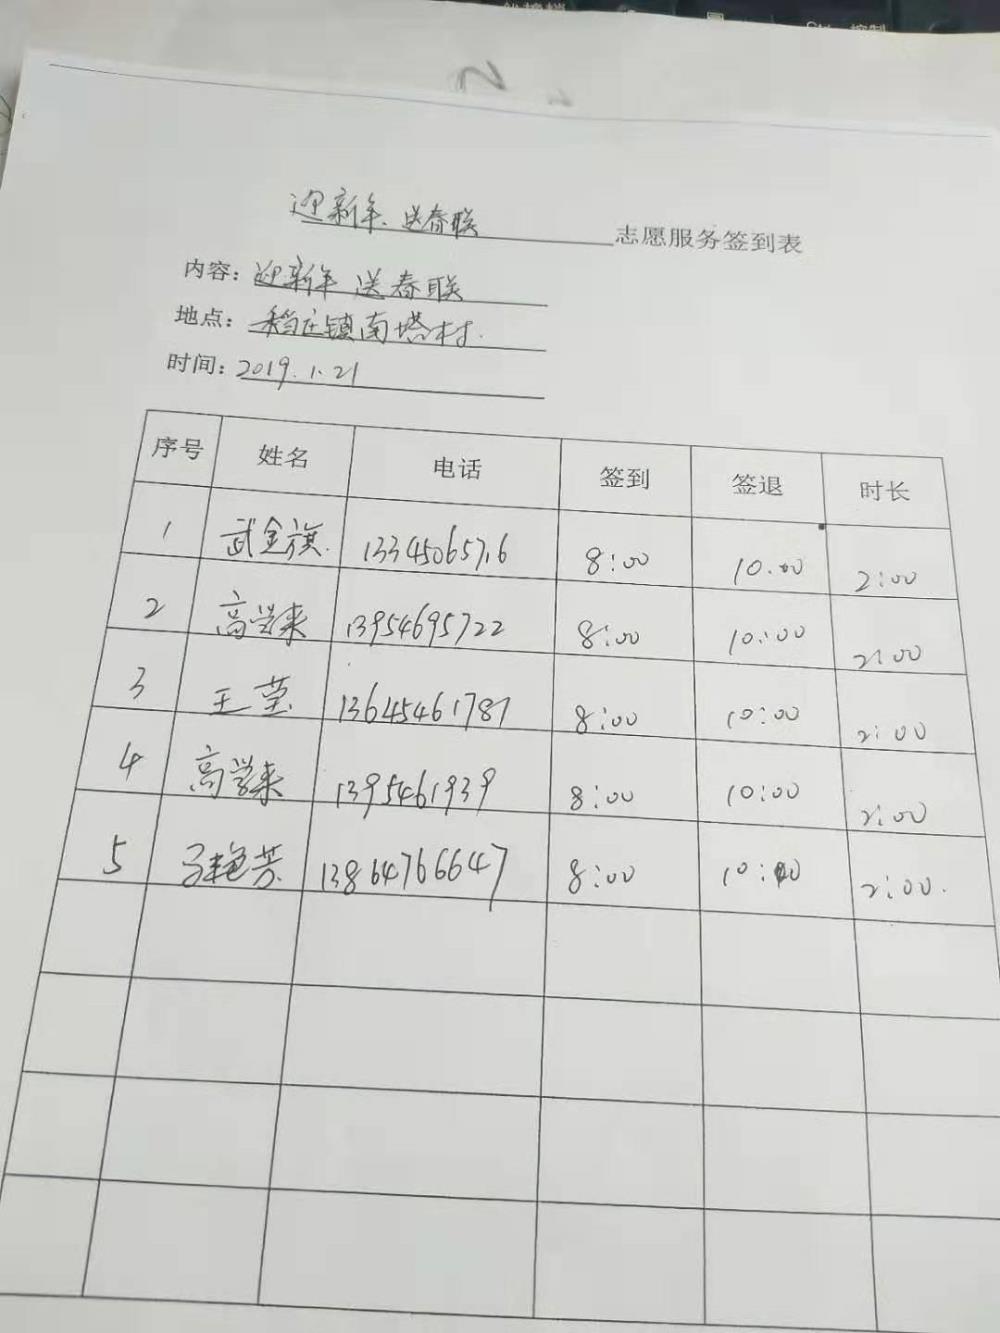 迎新年、送春联 志愿服务签到表
内容：迎新年 送春联
地点：稻庄镇南塔村.
时间：2019.1.21
序号 姓名 电话 签到 签退 时长
1 武金旗 13345065716 8:00 10:00 2:00
2 高学来 13954695722 8:00 10:00 2:00
3 王莹 13645461787 8:00 10:00 2:00
4 高学来 1395461939 8:00 10:00 2:00
5 马艳芳 13864766647 8:00 10:00 2:00.